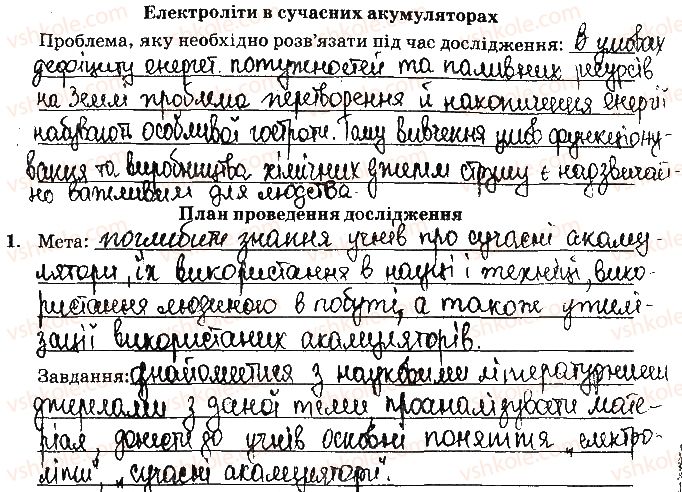 Електроліти в сучасних акумуляторах
Проблема, яку необхідно розв'язати під час дослідження: В умовах
дефіциту енергет. потужностей та паливних ресурсів
на Землі проблема перетворення й накопичення енергії
набувають особливої гостроти. Тому вивчення умов функціону-
вання та виробництва хімічних джерел струму є надзвичай-
но важливим для людства.
План проведення дослідження
1. Мета: поглибити знання учнів про сучасні акаму-
лятори, їх використання в науці і техніці, вико-
ристання людиною в побуті, а також утилі-
зації використаних акамуляторів.
Завдання: ознайомитися з науковими літературними
джерелами з даної теми проаналізувати мате-
ріал, донести до учнів основні поняття „електро-
літи", „сучасні акамулятори".